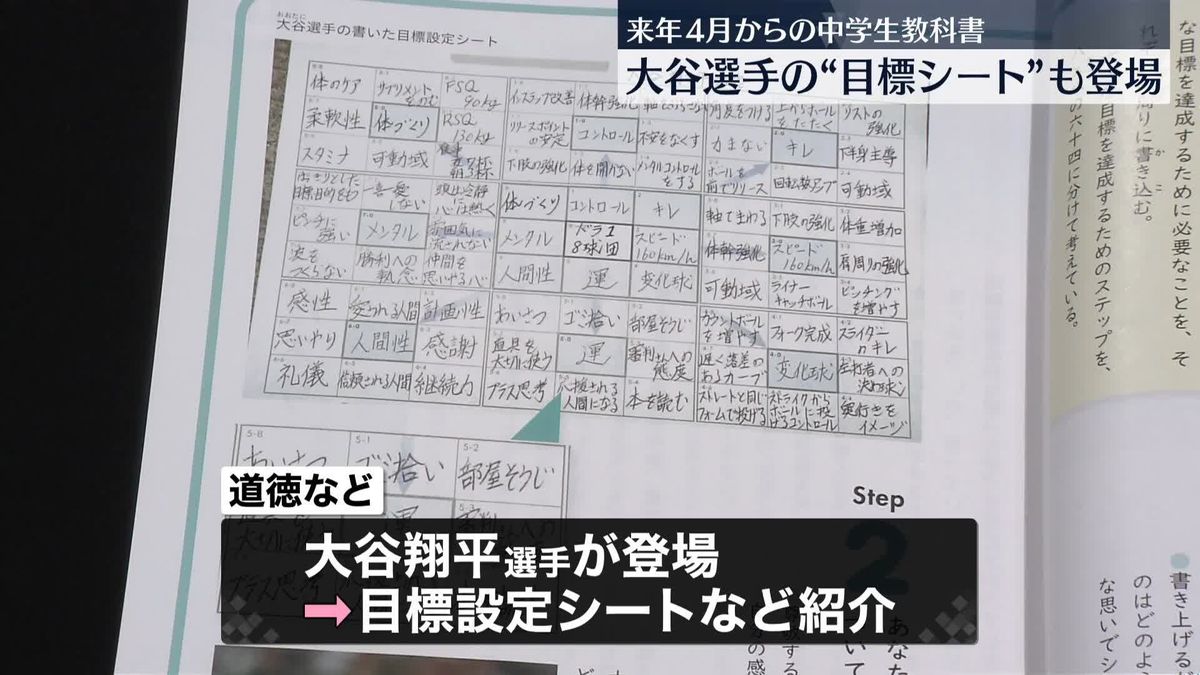 来年4月からの中学生教科書
大谷選手の“目標シート”も登場
おおたに
大谷選手の書いた目標設定シート
体のケア サプリメントをのむ FSQ 90kg インステップ改善 体幹強化
柔軟性 体づくり RSQ 130kg リリースポイントの安定 コントロール 不安をなくす 力まない キレ 下半身主導
スタミナ 可動域 下肢の強化 体を開かない メンタルコントロールをする ボールを前でリリース 回転数アップ 可動域
はっきりとした目標、目的をもつ 一喜一憂しない 頭は冷静に心は熱く 体づくり コントロール キレ 軸でまわる 下肢の強化 体重増加
ピンチに強い メンタル 雰囲気に流されない メンタル ドラ1 8球団 スピード 160km/h 体幹強化 スピード 160km/h 肩周りの強化
波をつくらない 勝利への執念 仲間を思いやる心 人間性 運 変化球 可動域 ライナーキャッチボール ピッチングを増やす
感性 愛される人間 計画性 あいさつ ゴミ拾い 部屋そうじ カウントボールを増やす フォーク完成 スライダーのキレ
思いやり 人間性 感謝 道具を大切に使う 運 審判さんへの態度 遅く落差のあるカーブ 変化球 左打者への決め球
礼儀 信頼される人間 継続力 プラス思考 応援される人間になる 本を読む ストレートと同じフォームで投げる ストライクからボールに投げるコントロール 奥行きをイメージ
5-8 5-1 5-2
あいさつ ゴミ拾い 部屋そうじ
プラス思考
道徳など
大谷翔平選手が登場
➡目標設定シートなど紹介
Step
2
な目標を達成するために必要なことを、そ
りに書き込む。
目標を達成するためのステップを、
の六十四に分けて考えている。
書き上げる
のはどのよ
な思いでシ